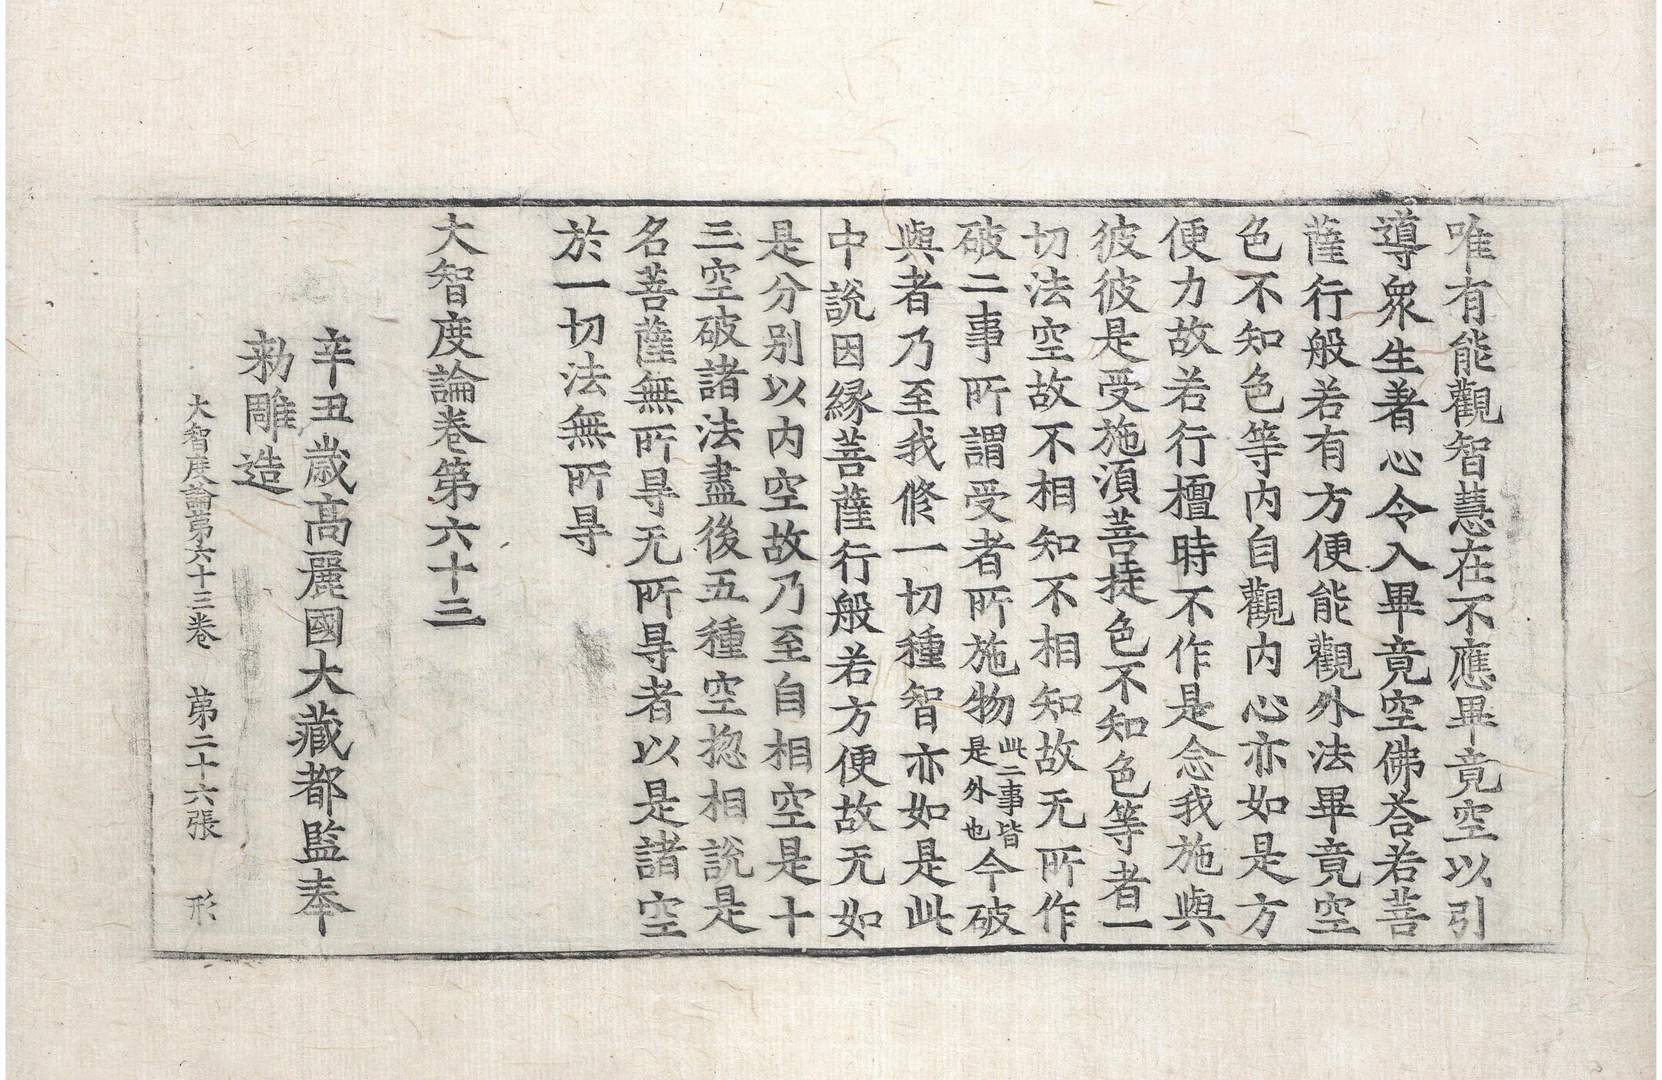 唯有能觀智慧在不應畢竟空以引
導衆生著心令入畢竟空佛荅若菩
薩行般若有方便能觀外法畢竟空
色不知色等內自觀內心亦如是方
便力故若行檀時不作是念我施與
彼彼是受施湏菩提色不知色等者一
切法空故不相知不相知故无所作
破二事所謂受者所施物此二事皆是外也今破
與者乃至我修一切種智亦如是此
中說因緣菩薩行般若方便故无如
是分別以內空故乃至自相空是十
三空破諸法盡後五種空揔相說是
名菩薩無所㝵无所㝵者以是諸空
於一切法無所㝵
大智度論卷第六十三
辛丑歲高麗國大藏都監奉
勑雕造
大智度論第六十三卷 第二十六張 形